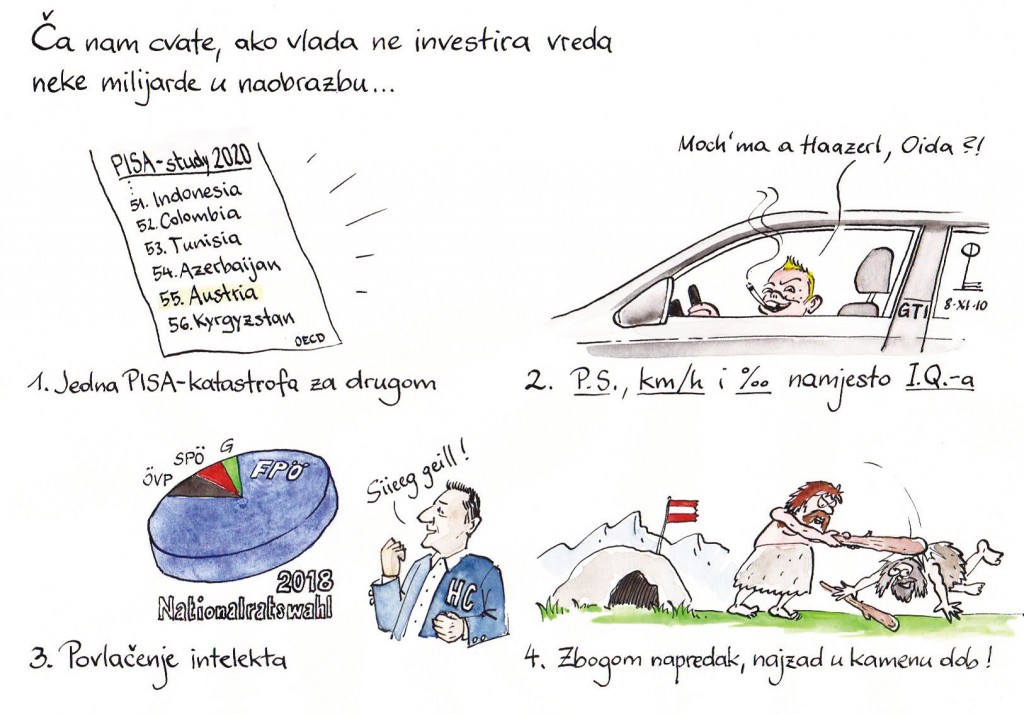 Ča nam cvate, ako vlada ne investira vreda
neke milijarde u naobrazbu...
PISA-study 2020
51. Indonesia
52. Colombia
53. Tunisia
54. Azerbaijan
55. Austria
56. Kyrgyzstan
OECD
1. Jedna PISA-katastrofa za drugom
Moch'ma a Haazerl, Oida?!
GTI
8-XI-10
2. P.S., km/h i ‰ namjesto I.Q.-a
ÖVP
SPÖ
G
FPÖ
2018
Nationalratswahl
Siieeg geill!
HC
3. Povlačenje intelekta
4. Zbogom napredak, najzad u kamenu dob!